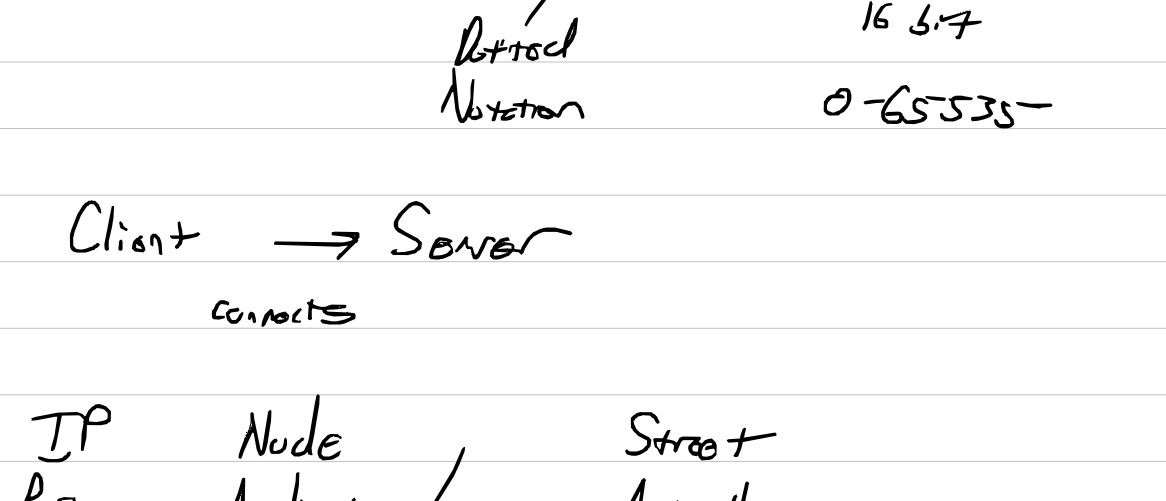 16 bit
Dotted
Notation
0-65535
Client → Server
connects
IP Node Street